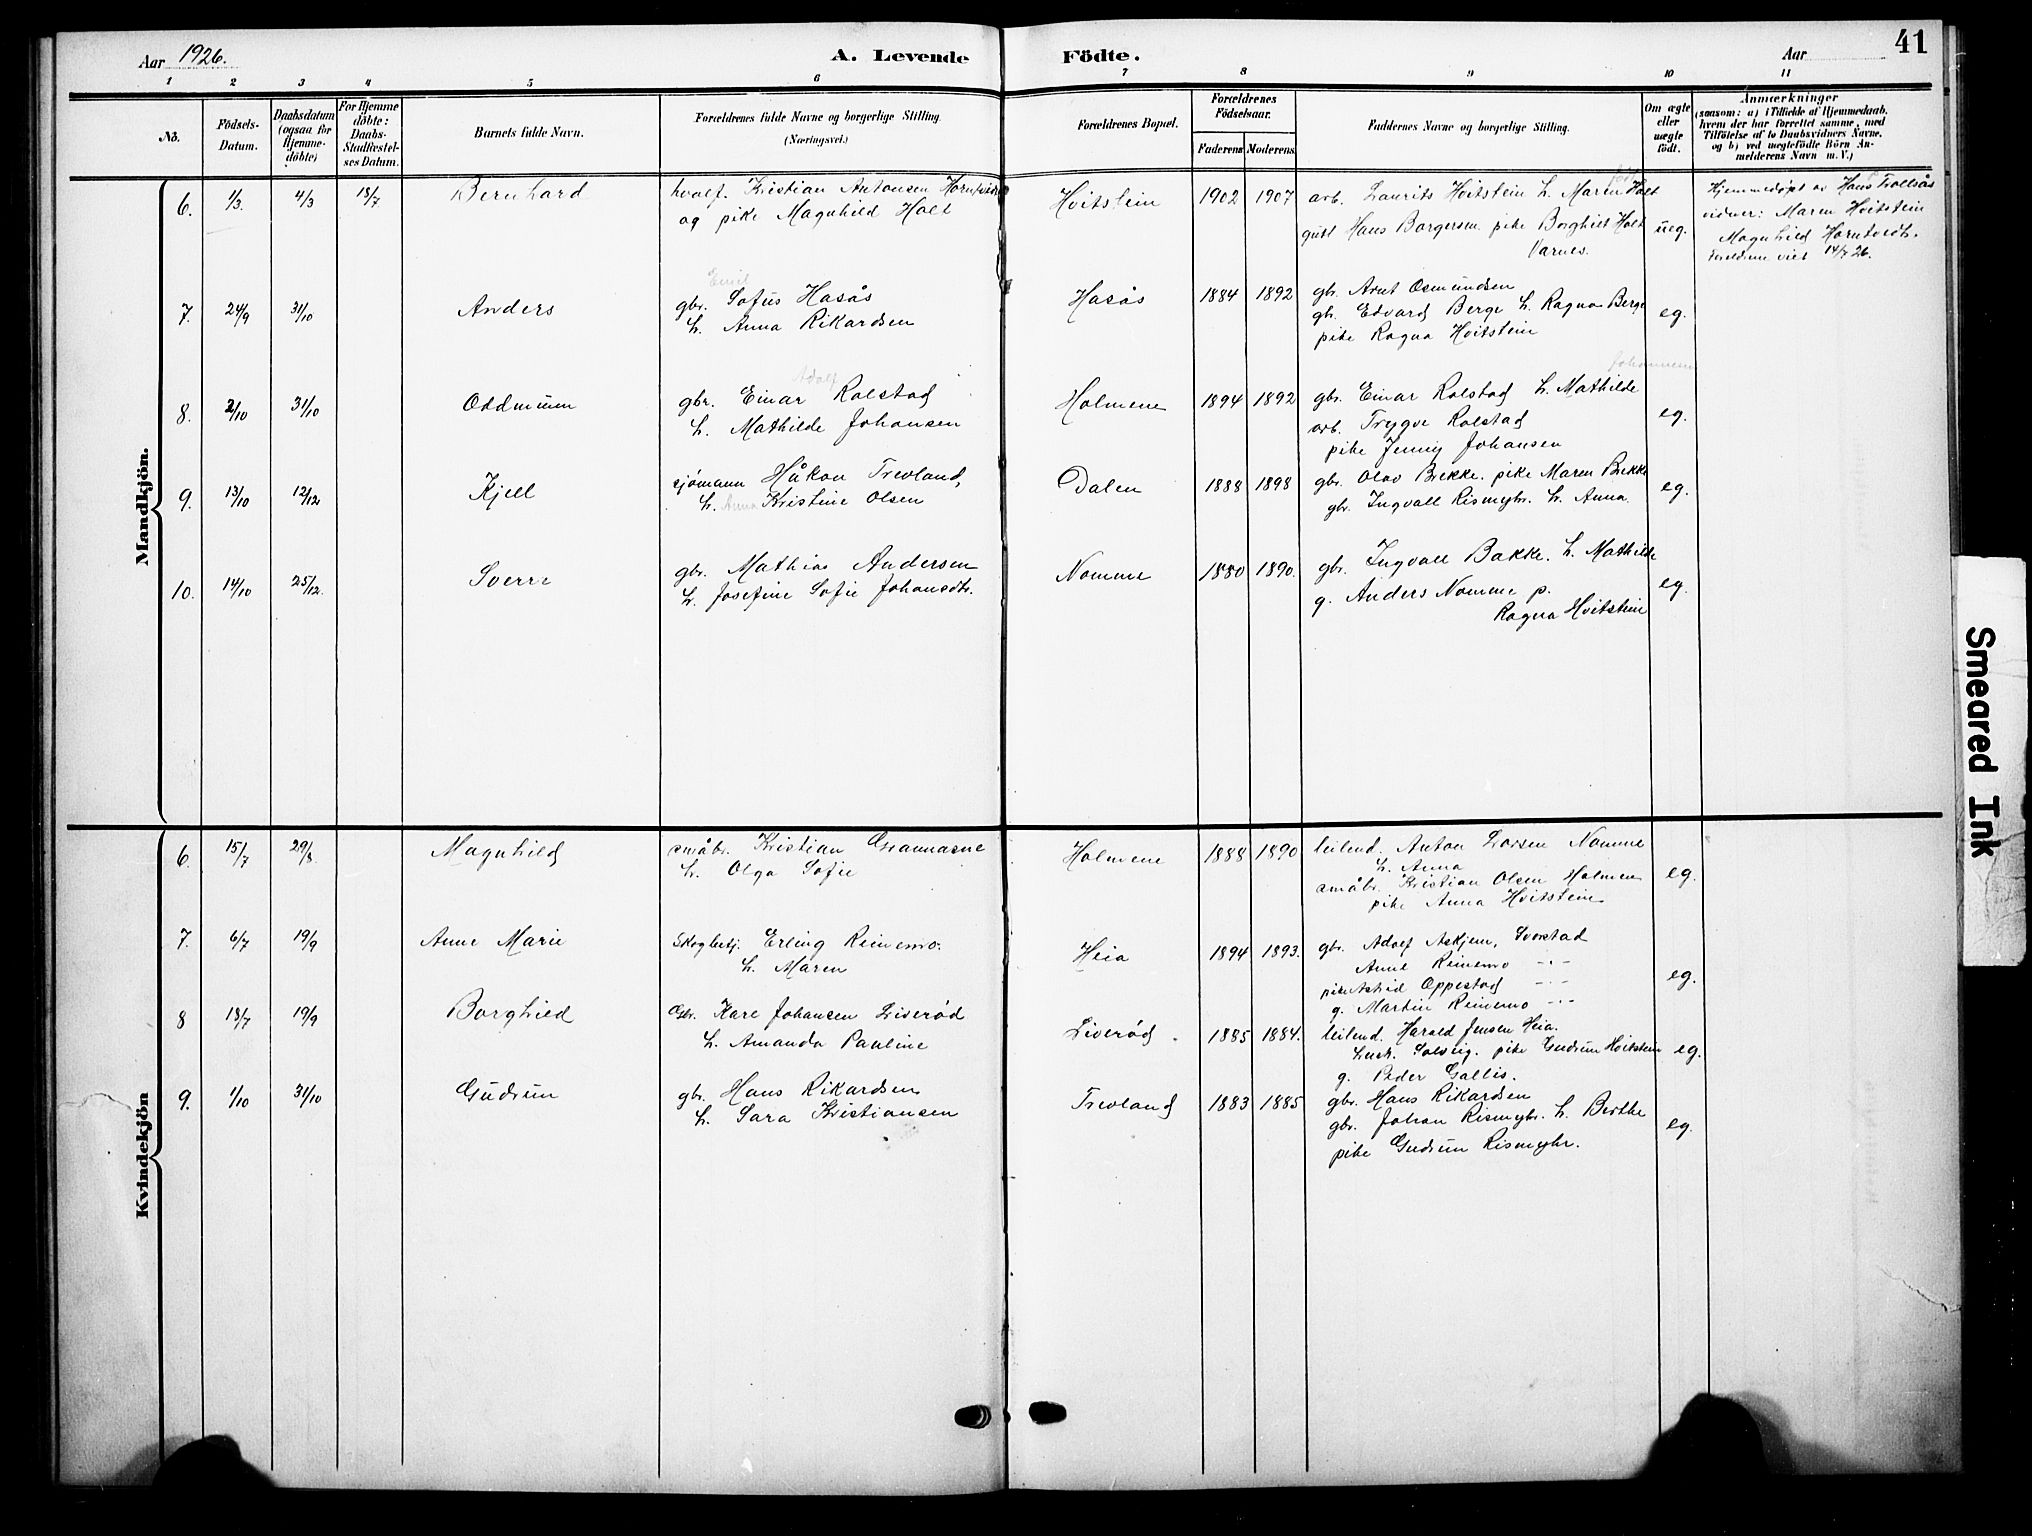 Aar 1926.
A. Levende Födte.
Aar
41
1 2 3 4 5 6 7 8 9 10 11
No. Födsels-Datum. Daabsdatum (ogsaa for Hjemme-döbte) For Hjemme döbte: Daabs-Stadfæstel-ses Datum. Barnets fulde Navn. Forældrenes fulde Navne og borgerlige Stilling. (Næringsvei.) Forældrenes Bopæl. Forældrenes Födselsaar. Faderens Moderens Faddernes Navne og borgerlige Stilling. Om ægte eller uægte födt. Anmærkninger (saasom: a) i Tilfælde af Hjemmedaab. hvem der har forrettet samme, med Tilföielse af to Daabsvidners Navne. og b) ved uegtefödte Börn An-melderens Navn m. V.)
Mandkjön.
6. 1/3. 4/3 18/7 Bernhard hvalf. Kristian Antonsen Horntvedt Hvitstein 1902 1907 arb. Laurits Hvitstein h. Maren Holt Hjemmedøpt av Hans Trollsås
og pike Magnhild Holt gust Hans Borgersen pike Borghild Holt ueg. vidner: Maren Hvitstein
Varnes. Magnhild Horntvedt.
Foreldrene viet 14/7 26.
Emil
7. 24/9 31/10 Anders gbr. Sofus Hasås Hasås 1884 1892 gbr. Arnt Osmundsen
h. Anna Rikardsen gb. Edvard Berge h. Ragna Berge eg.
pike Ragna Hvitstein
Adolf Johannesen
8. 2/10 31/10 Oddmunn gbr. Einar Rolstad Holmene 1894 1892 gbr. Einar Rolstad h. Mathilde
h. Mathilde Johansen arb. Trygve Rolstad eg.
pike Jenny Johansen
9. 13/10 12/12 Kjell sjømann Håkon Trevland, Dalen 1888 1898 gbr. Olav Bekke. pike Maren Bekke
h. Anna Kristine Olsen gbr. Ingvall Rismyhr. h. Anna. eg.
10. 14/10 25/12. Sverre gbr. Mathias Andersen Nomme 1880 1890. gbr. Ingvall Bakke. h. Mathilde
h. Josefine Sofie Johansdtr. g. Anders Nomme p. eg.
Ragna Hvitstein
Kvindekjön
6. 15/7 29/8 Magnhild småbr. Kristian Grannasne Holmene 1888 1890 leilend. Anton Larsen Nomme
h. Olga Sofie h. Anna
småbr. Kristian Olsen Holmen eg.
pike Anna Hvitstein
7. 6/7 19/9 Anne Marie Skogbetj. Erling Reinemo. Heia 1894 1893. gbr. Adolf Askjem, Svorstad
h. Maren Anne Reinemo -"-
pike Astrid Oppestad -"- eg.
g. Martin Reinemo -"-
8 18/7 19/9 Borghild Gbr. Kare Johansen Liverød Liverød. 1885 1884. leilend. Harald Jensen Heia.
h. Amanda Pauline hustr. Solveig. pike Gudrun Hvitstein eg.
g. Peder Gallis.
9. 1/10 31/10 Gudrun gbr. Hans Rikardsen Trevland 1883 1885 gbr. Hans Rikardsen
h. Sara Kristiansen gbr. Johan Rismyhr. h. Berthe eg.
pike Gudrun Rismyhr.
Smeared Ink